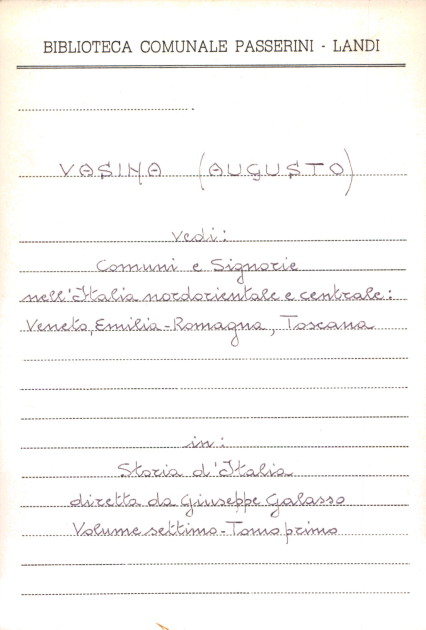 BIBLIOTECA COMUNALE PASSERINI - LANDI
VASINA (AUGUSTO)
vedi:
Comuni e Signorie
nell'Italia nordorientale e centrale:
Veneto, Emilia-Romagna, Toscana
in:
Storia d'Italia
diretta da Giuseppe Galasso
Volume settimo-Tomo primo